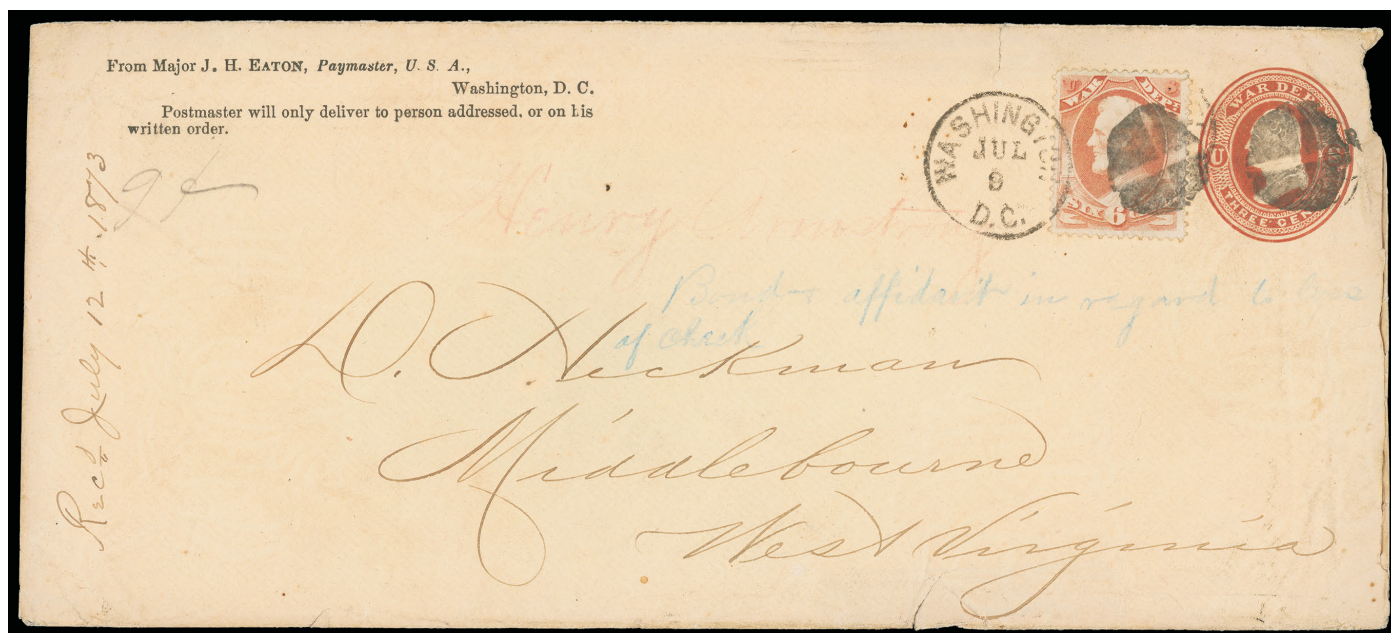 From Major J. H. EATON, Paymaster, U. S. A.,
Washington, D. C.
Postmaster will only deliver to person addressed, or on his
written order.
WASHINGTON
JUL
D.C.
WAR DEPT
SIX 6
WAR DEP
U
THREE CEN
Henry Armstrong
Bond & affidavit in regard to loss
of check
D. Heckman
Middlebourne
West Virginia
Recd July 12th 1873